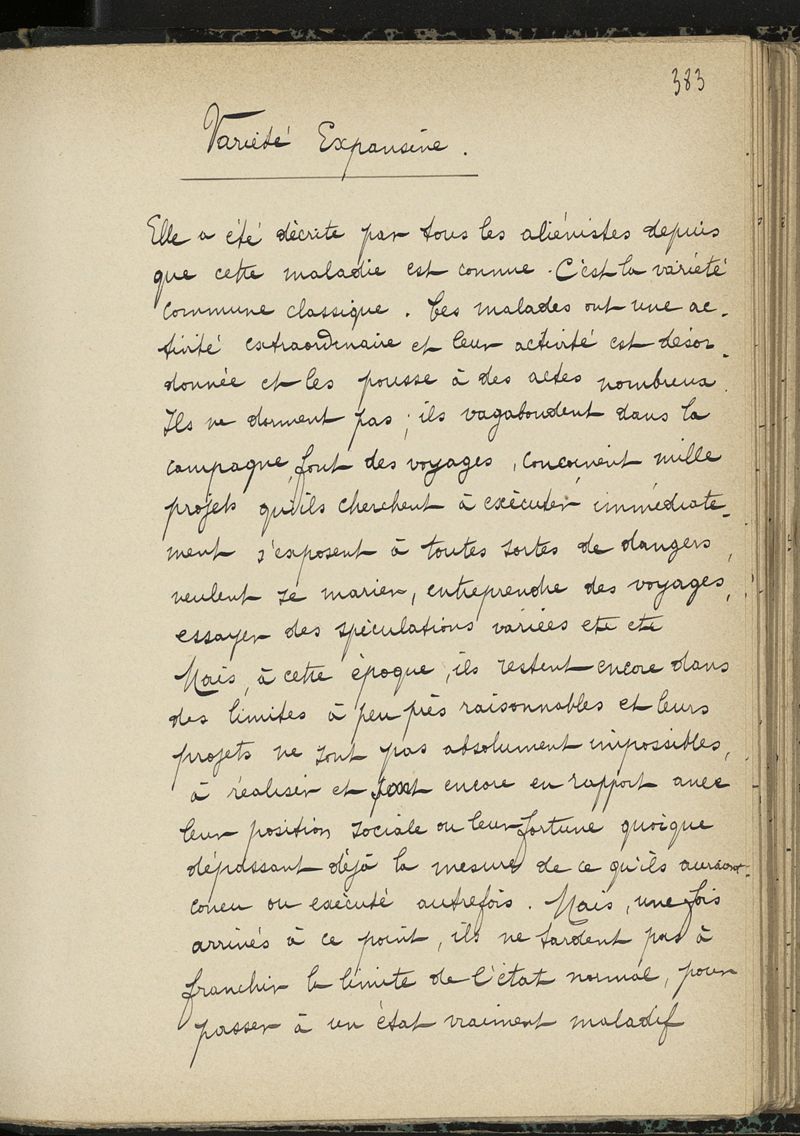 383
Variété Expansive.
Elle a été décrite par tous les aliénistes depuis
que cette maladie est connue. C'est la variété
commune classique. Ces malades ont une ac-
tivité extraordinaire et leur activité est désor-
donnée et les pousse à des actes nombreux.
Ils ne dorment pas; ils vagabondent dans la
campagne, font des voyages, conçoivent mille
projets qu'ils cherchent à exécuter immédiate-
ment s'exposent à toutes sortes de dangers,
veulent se marier, entreprendre des voyages,
essayer des spéculations variées etc etc
Mais, à cette époque, ils restent encore dans
des limites à peu près raisonnables et leurs
projets ne sont pas absolument impossibles,
à réaliser et sont encore en rapport avec
leur position sociale ou leur fortune quoique
dépassant déjà la mesure de ce qu'ils auraient
conçu ou exécuté autrefois. Mais, une fois
arrivés à ce point, ils ne tardent pas à
franchir la limite de l'état normal, pour
passer à un état vraiment maladif